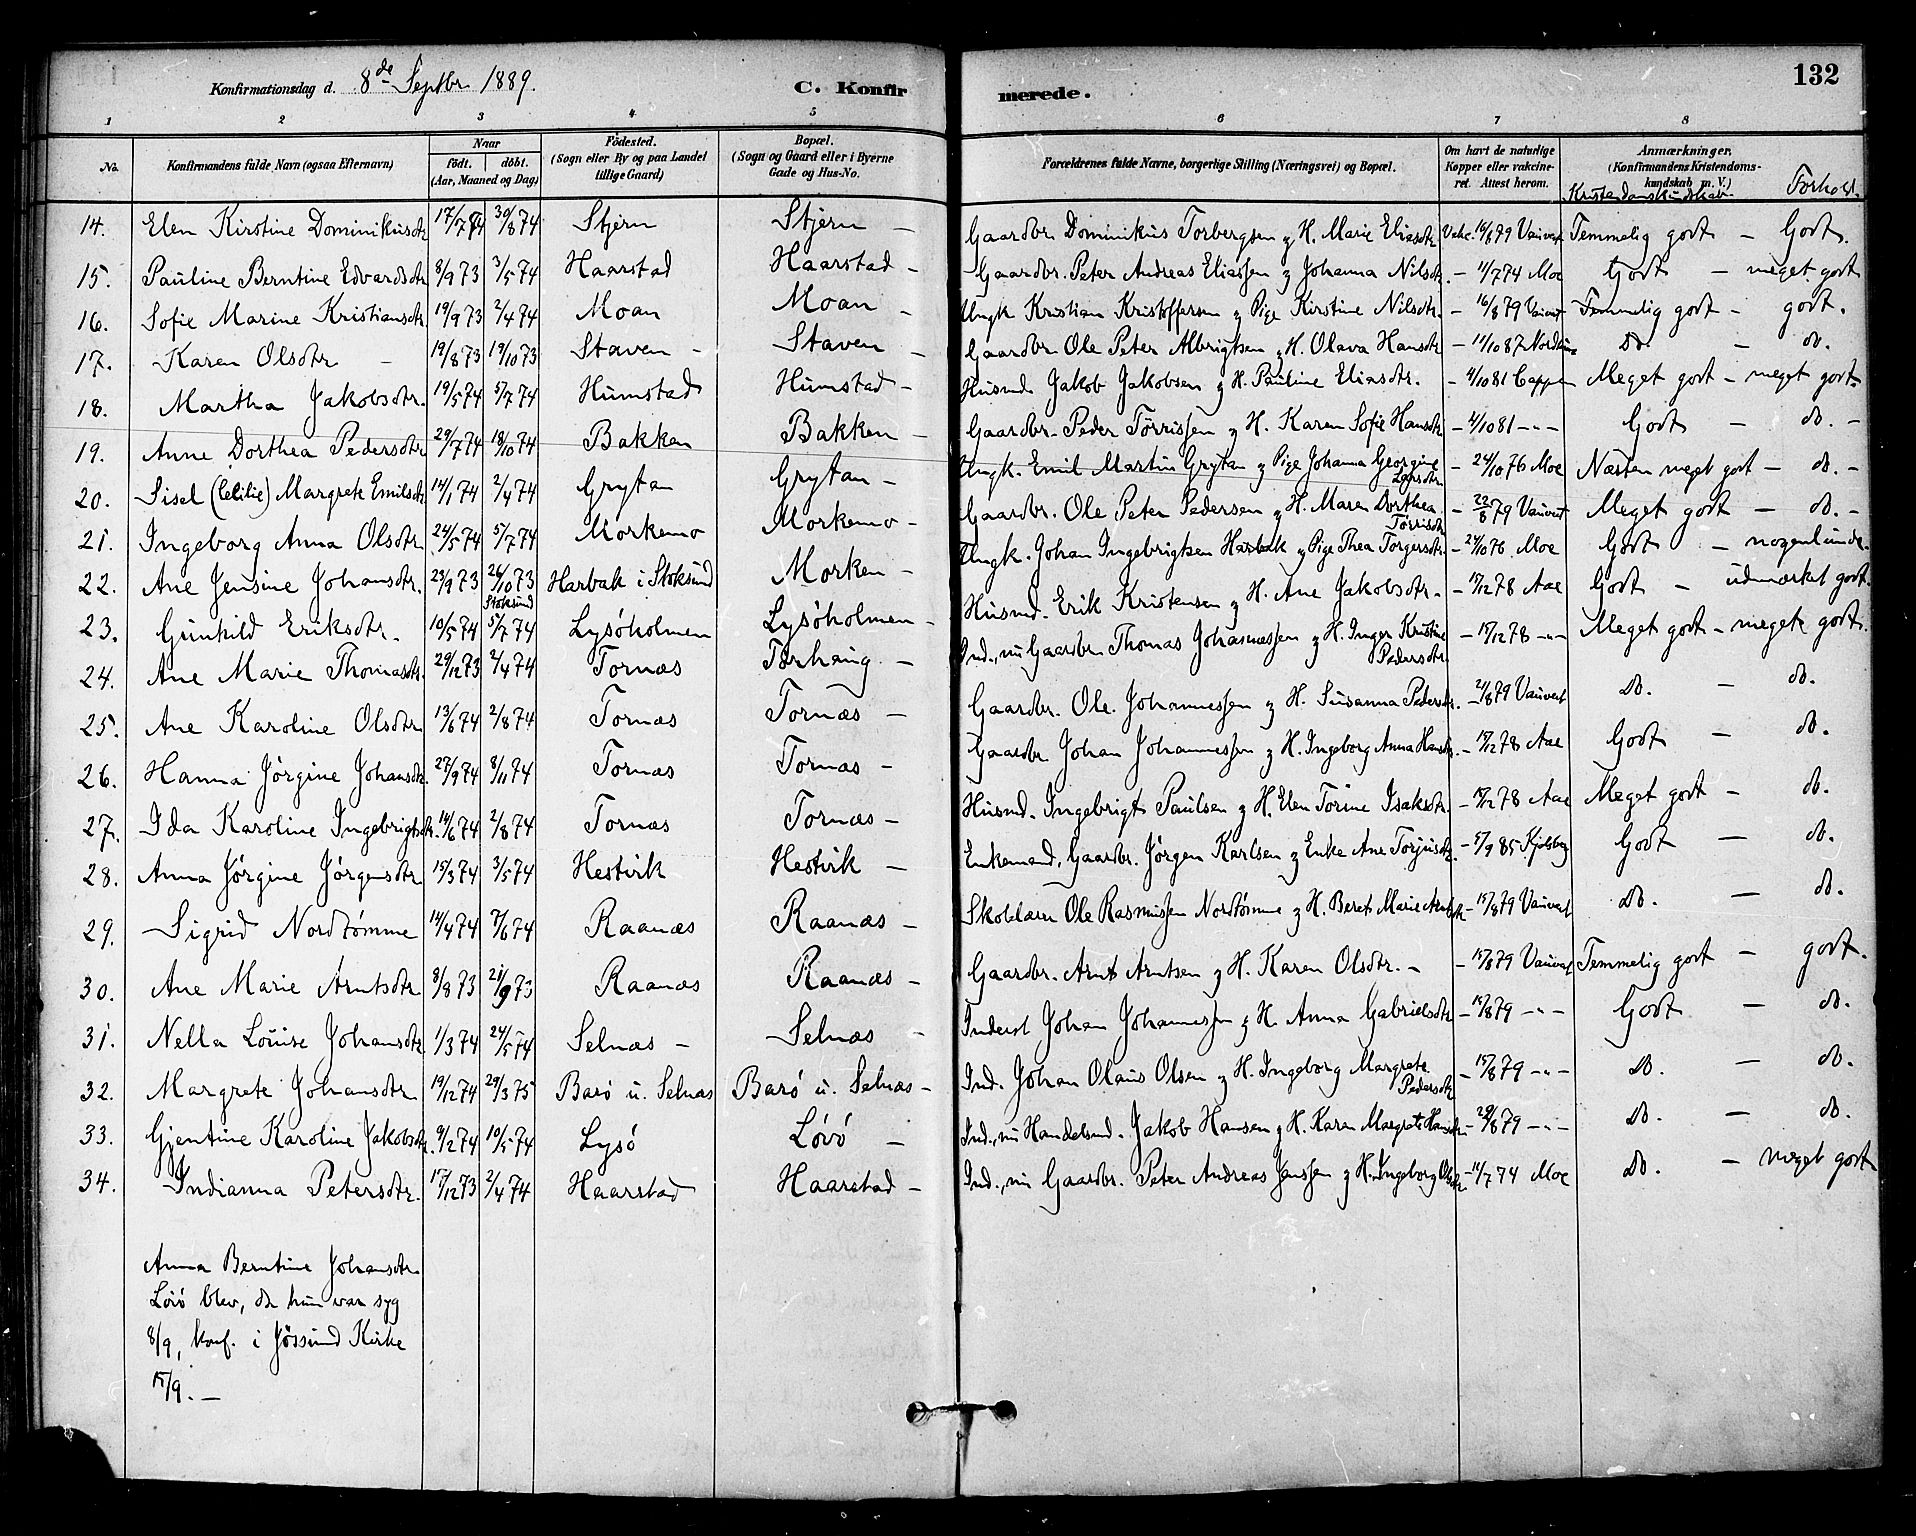 Konfirmationsdag d. 8de Septbr 1889.
C. Konfirmerede.
132
1 2 3 4 5 6 7 8
No. Konfirmandens fulde Navn (ogsaa Efternavn) Naar født. døbt. (Aar, Maaned og Dag) Fødested. (Sogn eller By og paa Landet tillige Gaard) Bopæl. (Sogn og Gaard eller i Byerne Gade og Hus-No. Forældrenes fulde Navne, borgerlige Stilling (Næringsvei) og Bopæl. Om havt de naturlige Kopper eller vakcineret. Attest herom. Anmærkninger, (Konfirmandens Kristendomskundskab m. V.) Kristendomskundskab Forhold.
14. Elen Kirstine Dominikusdtr 17/7 74 30/8 74 Stjern Stjern — Gaardbr. Dominikus Torbergsen g H. Marie Eliasdtr Vakc. 16/8 79 Vauvert Temmelig godt — Godt.
15. Pauline Berntine Edvardsdtr 8/9 73 3/5 74 Haarstad Haarstad — Gaardbr. Peter Andreas Eliassen g Johanna Nilsdtr — 11/7 74 Moe Godt — meget godt
16. Sofie Marine Kristiansdtr. 19/9 73 2/4 74 Moan Moan — Ungk Kristian Kristoffersen g Pige Kirstine Nilsdtr. — 16/8 79 Vauvert Temmelig godt — godt.
17. Karen Olsdtr — 19/8 73 19/10 73 Staven — Staven — Gaardbr. Ole Peter Albrigtsen g H. Olava Hansdtr — 14/10 87 Do — do.
18. Martha Jakobsdtr. 19/5 74 5/7 74 Humstad Humstad — Husmd. Jakob Jakobsen g H. Pauline Eliasdtr. — 4/10 81 Cappe Meget godt — meget godt
19. Anne Dorthea Pedersdtr 29/7 74 18/10 74 Bakken Bakken — Gaardbr. Peder Tørrissen g H. Karen Sofie Hansdtr — 4/10 81 -"- Godt — do. —
20. Sisel (Cecilie) Margrete Emilsdtr 14/1 74 2/4 74 Grytan Grytan — Ungk. Emil Martin Grytan g Pige Johanna Georgine Larsdtr. — 24/10 76 Moe Næsten meget godt — do. —
21. Ingeborg Anna Olsdtr 24/5 74 5/7 74 Morkemo Morkemo — Gaardbr. Ole Peter Pedersen g H. Maren Dorthea Tørrisdtr — 22/8 79 Vauvert Meget godt — do. —
22. Ane Jensine Johansdtr. 23/9 73 26/10 73 Stoksund Harbak i Stoksund Morken — Ungk. Johan Ingebrigtsen Harbak g Pige Thea Torgersdtr. — 24/10 76 Moe Godt — nogenlunde.
23. Gunhild Eriksdtr. 10/5 74 5/7 74 Lysøholmen Lysøholmen — Husmd. Erik Kristensen g H. Ane Jakobsdtr. — 17/12 78 Aae Godt — udmærket godt.
24. Ane Marie Thomasdtr. 29/12 73 2/4 74 Tornæs Tørhaug — Ind., nu Gaardbr. Thomas Johannessen g H. Inger Kristine Pedersdtr. — 17/12 78 -"- Meget godt — meget godt.
25. Ane Karoline Olsdtr 13/6 74 2/8 74 Tornæs Tornæs — Gaardbr. Ole Johannessen g H. Susanna Pedersdtr. — 21/8 79 Vauvert Do. — do.
26. Hanna Jørgine Johansdtr 27/9 74 8/11 74 Tornæs Tornæs — Gaardbr Johan Johannessen g H. Ingeborg Anna Hansdtr. — 17/12 78 Aae Godt — do.
27. Ida Karoline Ingebrigtsdtr. 14/6 74 2/8 74 Tornæs Tornæs — Husmd. Ingebrigt Paulsen g H. Elen Torine Isaksdtr. — 17/12 78 Aae Meget godt — do.
28. Anna Jørgine Jørgensdtr 15/3 74 3/5 74 Hestvik Hestvik — Enkemand, Gaardbr. Jørgen Karlsen g Enke Ane Torjusdtr. — 5/9 85 Godt — do.
29. Sigrid Nordtømme 14/4 74 7/6 74 Raanæs Raanæs — Skolelærer Ole Rasmussen Nordtømme g H. Beret Marie Arntsdtr — 15/8 79 Vauvert Do. — do.
30. Ane Marie Arntsdtr 8/8 73 21/9 73 Raanæs Raanæs — Gaardbr. Arnt Arntsen g H. Karen Olsdtr. — — 15/8 79 Vauvert Temmelig godt — godt.
31. Nella Louise Johansdtr. 1/3 74 24/5 74 Selnæs — Selnæs — Inderst Johan Johannessen g H Anna Gabrielsdtr — 15/8 79 -"- Godt — do.
32. Margrete Johansdtr 19/12 74 29/3 75 Barø u. Selnæs Barø u. Selnæs — Ind. Johan Olaus Olsen g H. Ingeborg Margrete Pedersdtr — 15/8 79 -"- Do. — do.
33. Gjentine Karoline Jakobsdtr. 9/2 74 10/5 74 Lysø Løvø — Ind., nu Handelsmd. Jakob Hansen g H. Karen Margrete Hansdtr. — 29/8 79 -"- Do. — do.
34. Indianna Petersdtr. 17/12 73 2/4 74 Haarstad Haarstad — Ind., nu Gaardbr. Peter Andreas Jenssen g H. Ingeborg Olsdtr. — 11/7 74 Moe Do. — meget godt
Anna Berntine Johansdtr.
Løvø blev, da hun var syg
8/9, konf. i Jøssund Kirke
15/9. —